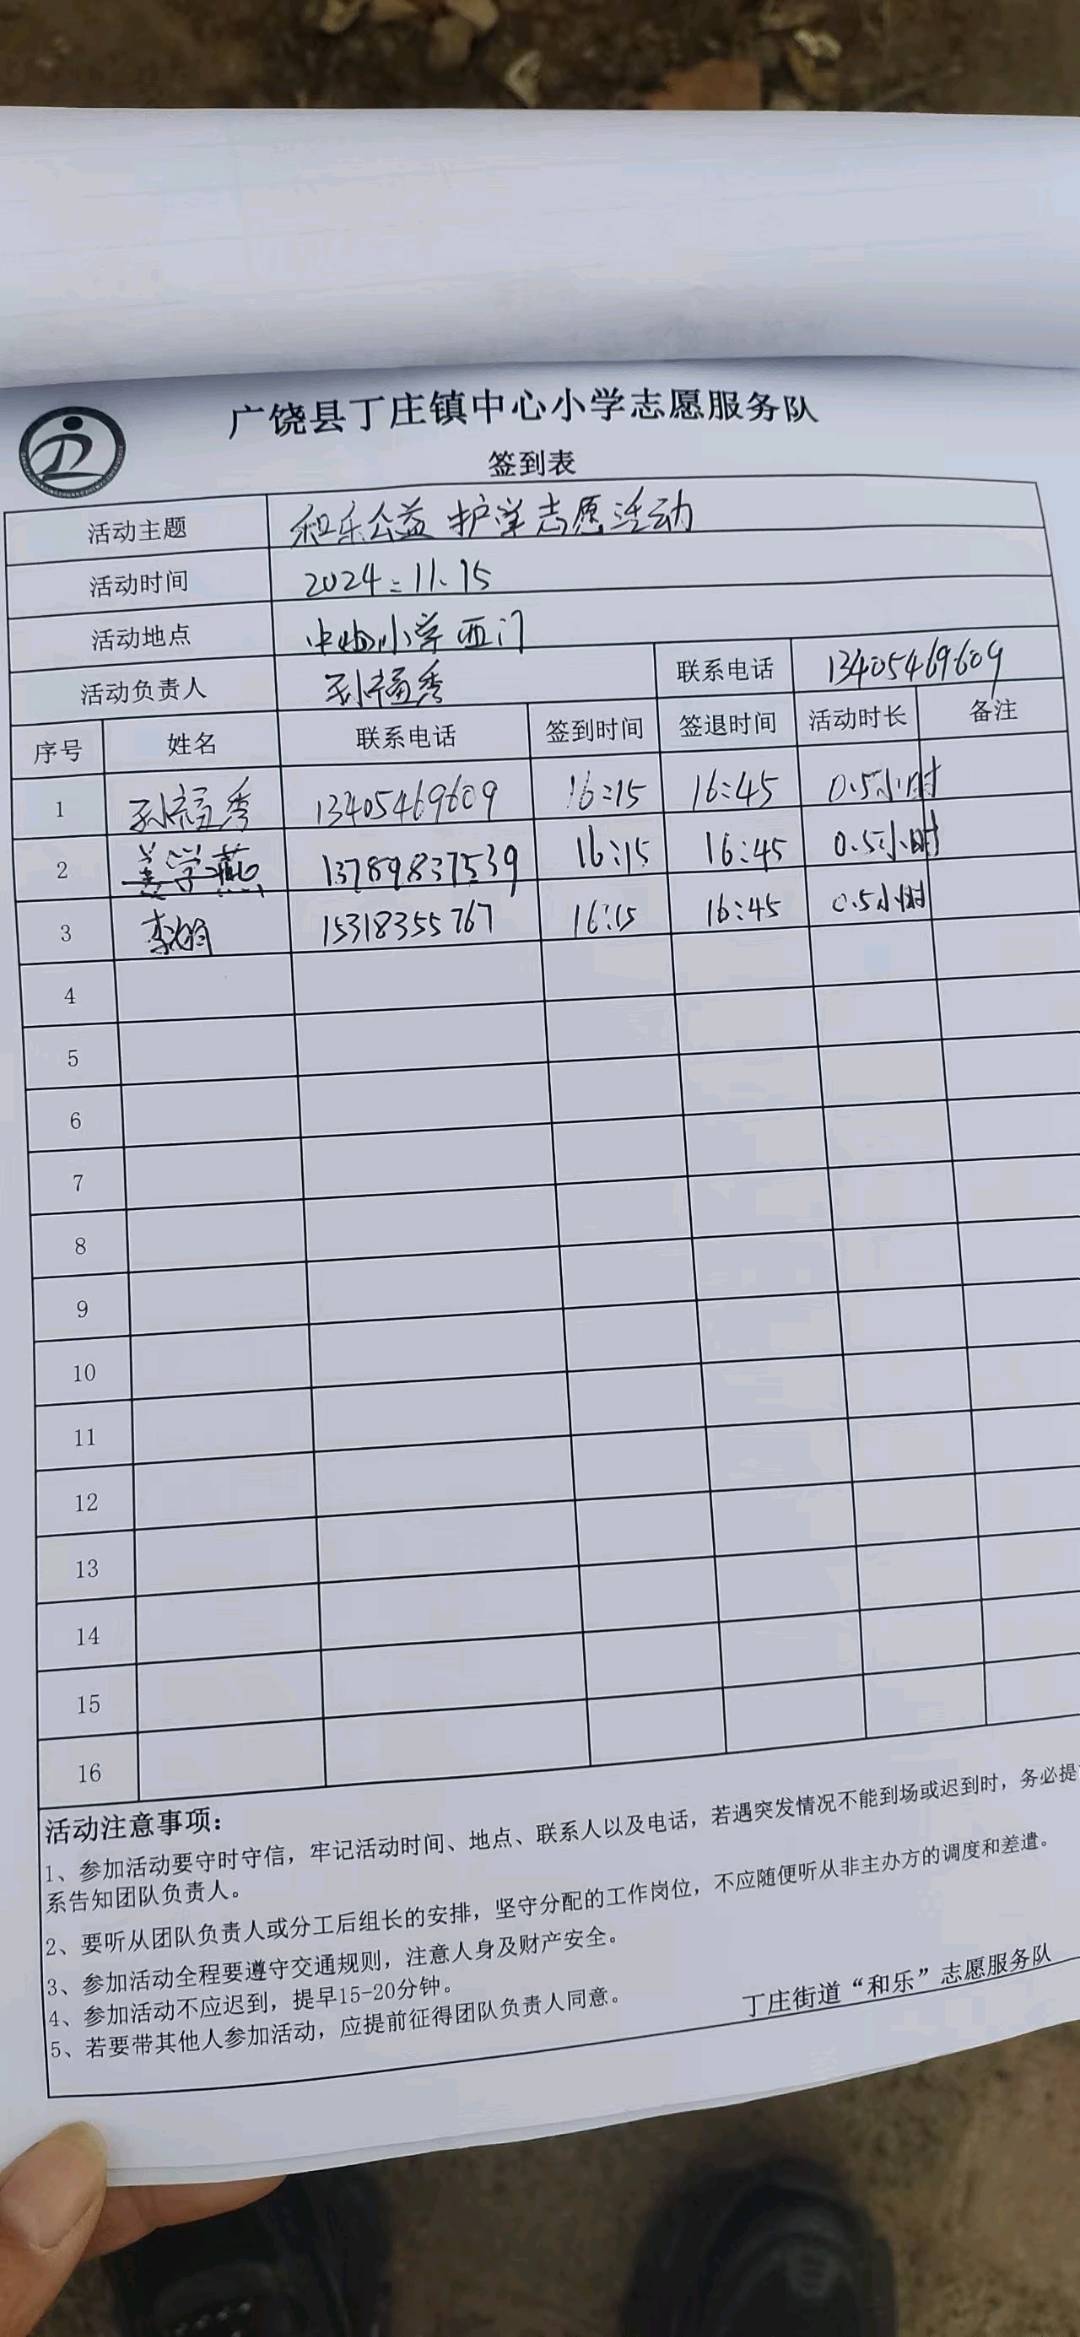 广饶县丁庄镇中心小学志愿服务队
签到表
活动主题 和乐公益 护学志愿活动
活动时间 2024.11.15
活动地点 中心小学西门
活动负责人 刘福秀 联系电话 13405469609
序号 姓名 联系电话 签到时间 签退时间 活动时长 备注
1 刘福秀 13405469609 16:15 16:45 0.5小时
2 姜学燕 13789837539 16:15 16:45 0.5小时
3 李娟 15318355767 16:15 16:45 0.5小时
4
5
6
7
8
9
10
11
12
13
14
15
16
活动注意事项:
1、参加活动要守时守信，牢记活动时间、地点、联系人以及电话，若遇突发情况不能到场或迟到时，务必提
系告知团队负责人。
2、要听从团队负责人或分工后组长的安排，坚守分配的工作岗位，不应随便听从非主办方的调度和差遣。
3、参加活动全程要遵守交通规则，注意人身及财产安全。
4、参加活动不应迟到，提早15-20分钟。
5、若要带其他人参加活动，应提前征得团队负责人同意。
丁庄街道“和乐”志愿服务队